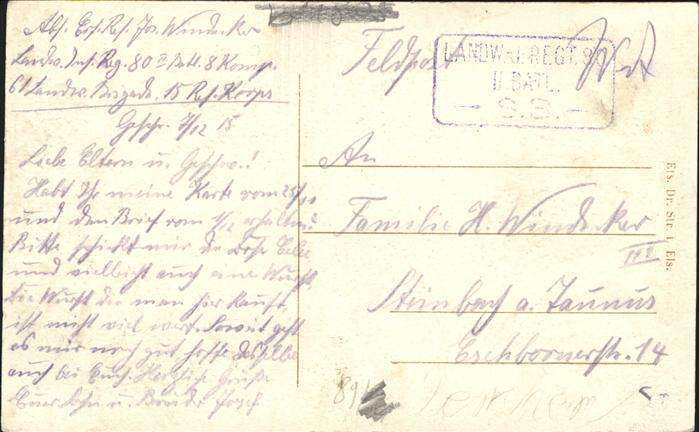 Abs. Ers. Res. Jos. Windecker
Landw. Inf. Reg. 80 II Batl. 8 Komp.
61 Landw. Brigade. 15 Res. Koops
Geschr. 7/12 15
Liebe Eltern u. Geschw.!
Habt Ihr meine Karte vom 25/
und den Brief vom 1/12 erhalten?
Bitte schickt mir die Dose
und vielleicht auch eine Wurst,
die Wurst die man hir kauft,
ist nicht viel wert. Soweit geht
es mir noch gut hoffe dasselbe
auch bei Euch. Herzliche Grüße
Euer Sohn u. Bruder Josef
Feldpost
LANDW. I. REGT. 80
II. BATL.
An
Familie H. Windecker
Steinbach a. Taunus
Eschbornerstr. 14
Els. Dr. Str. i. Els.